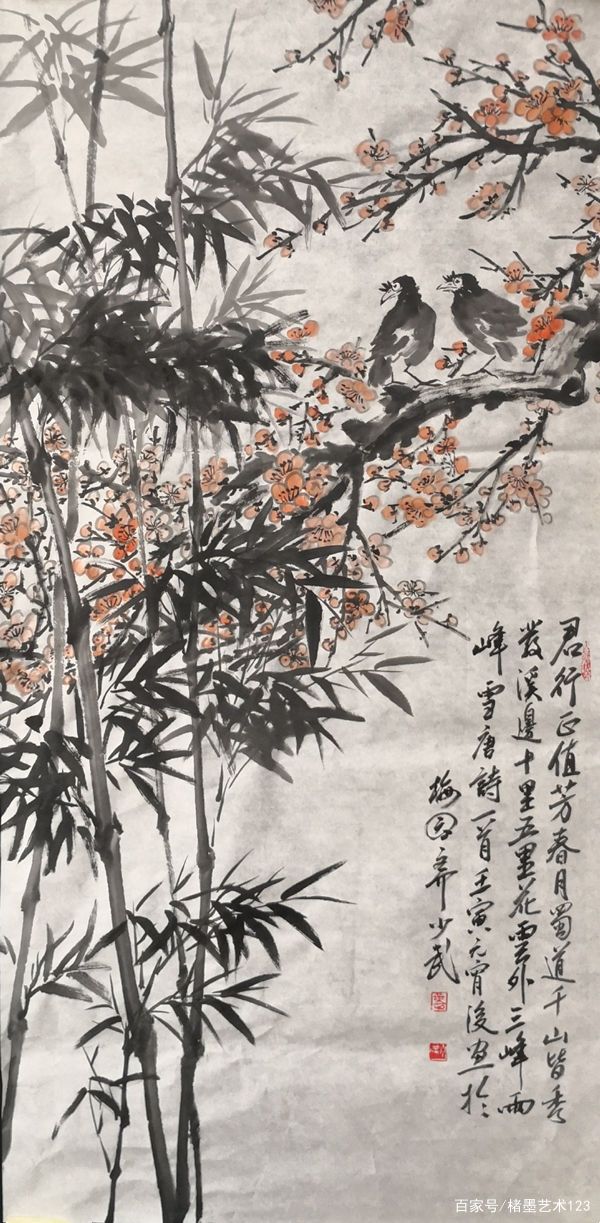 君行正值芳春月蜀道千山皆秀
發溪邊十里五里花雲外三峰兩
峰雪唐詩一首壬寅元宵後画於
梅園齊少武
百家号/楮墨艺术123